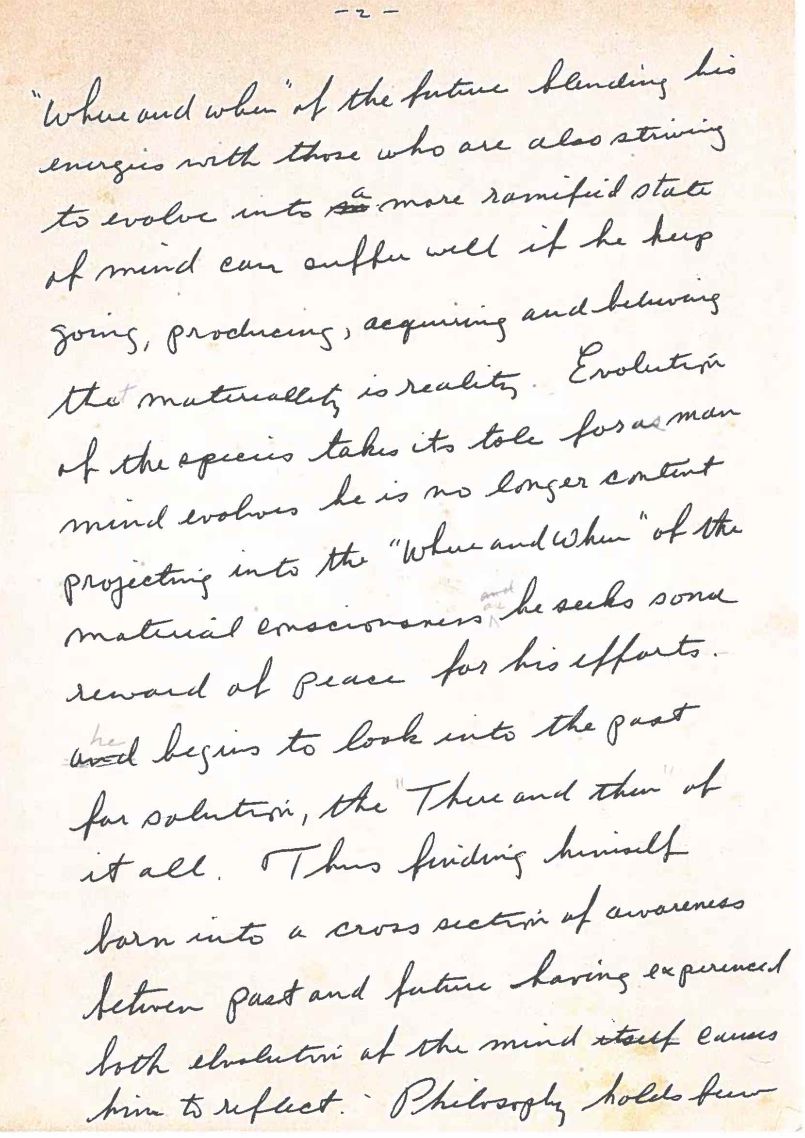 - 2 -
"Where and when" of the future blending his
energies with those who are also striving
to evolve into a more ramified state
of mind can suffer well if he keep
going, producing, acquiring and believing
that materiallity is reality. Evolution
of the species takes its tole for as man
mind evolves he is no longer content
projecting into the "Where and When" of the
material consciousness and he seeks some
reward of peace for his efforts.
he begins to look into the past
for solution, the "There and then" of
it all. Thus finding himself
born into a cross section of awareness
between past and future having experienced
both elvolution of the mind itself causes
him to reflect. Philosophy holds few